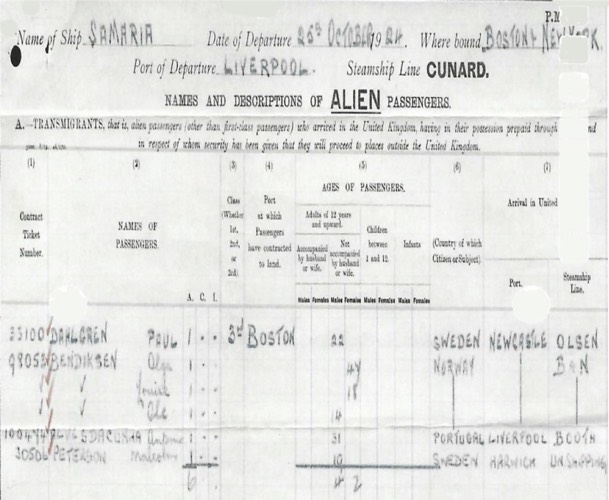 Name of Ship SAMARIA Date of Departure 25th OCTOBER 1924. Where bound BOSTON & NEW YORK.
Port of Departure LIVERPOOL. Steamship Line CUNARD.
NAMES AND DESCRIPTIONS OF ALIEN PASSENGERS.
A.—TRANSMIGRANTS, that is, alien passengers (other than first-class passengers) who arrived in the United Kingdom, having in their possession prepaid through
in respect of whom security has been given that they will proceed to places outside the United Kingdom.
(1) (2) (3) (4) (5) (6) (7)
Contract Ticket Number.
NAMES OF PASSENGERS.
Class (Whether 1st, 2nd, or 3rd).
Port at which Passengers have contracted to land.
AGES OF PASSENGERS.
Adults of 12 years and upward.
Accompanied by husband or wife.
Not accompanied by husband or wife.
Children between 1 and 12.
Infants
(Country of which Citizen or Subject).
Arrival in United
Port.
Steamship Line.
A. C. I. Males Females Males Females Males Females Males Females
35100 DAHLGREN PAUL 1 - - 3rd BOSTON 22 SWEDEN NEWCASTLE OLSEN
BENDIKSEN Olga 1 - - 47 NORWAY B & N
1 - - 18
Ole 1 - - 14
1 - - 31 PORTUGAL LIVERPOOL BOOTH
PETERSON Malcolm 1 - - 19 SWEDEN HARWICH UN.SHIPPING
6 4 2